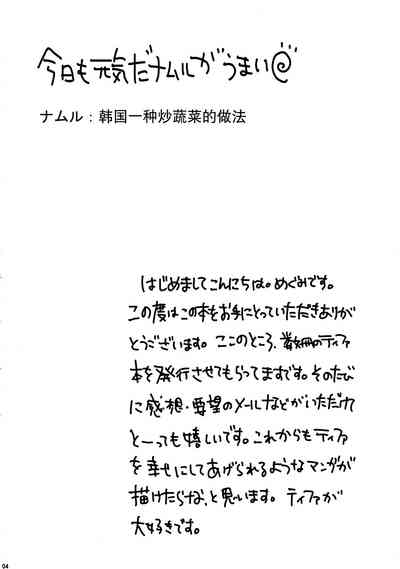 今日も元気だナムルがうまい@
ナムル：韩国一种炒蔬菜的做法
はじめましてこんにちは。めぐみです。
この度はこの本をお手にとっていただきありが
とうございます。ここのところ、数冊のティファ
本を発行させてもらってますです。そのたび
に感想・要望のメールなどがいただけて
とーっても嬉しいです。これからもティファ
を幸せにしてあげられるようなマンガが
描けたらな、と思います。ティファが
大好きです。
04